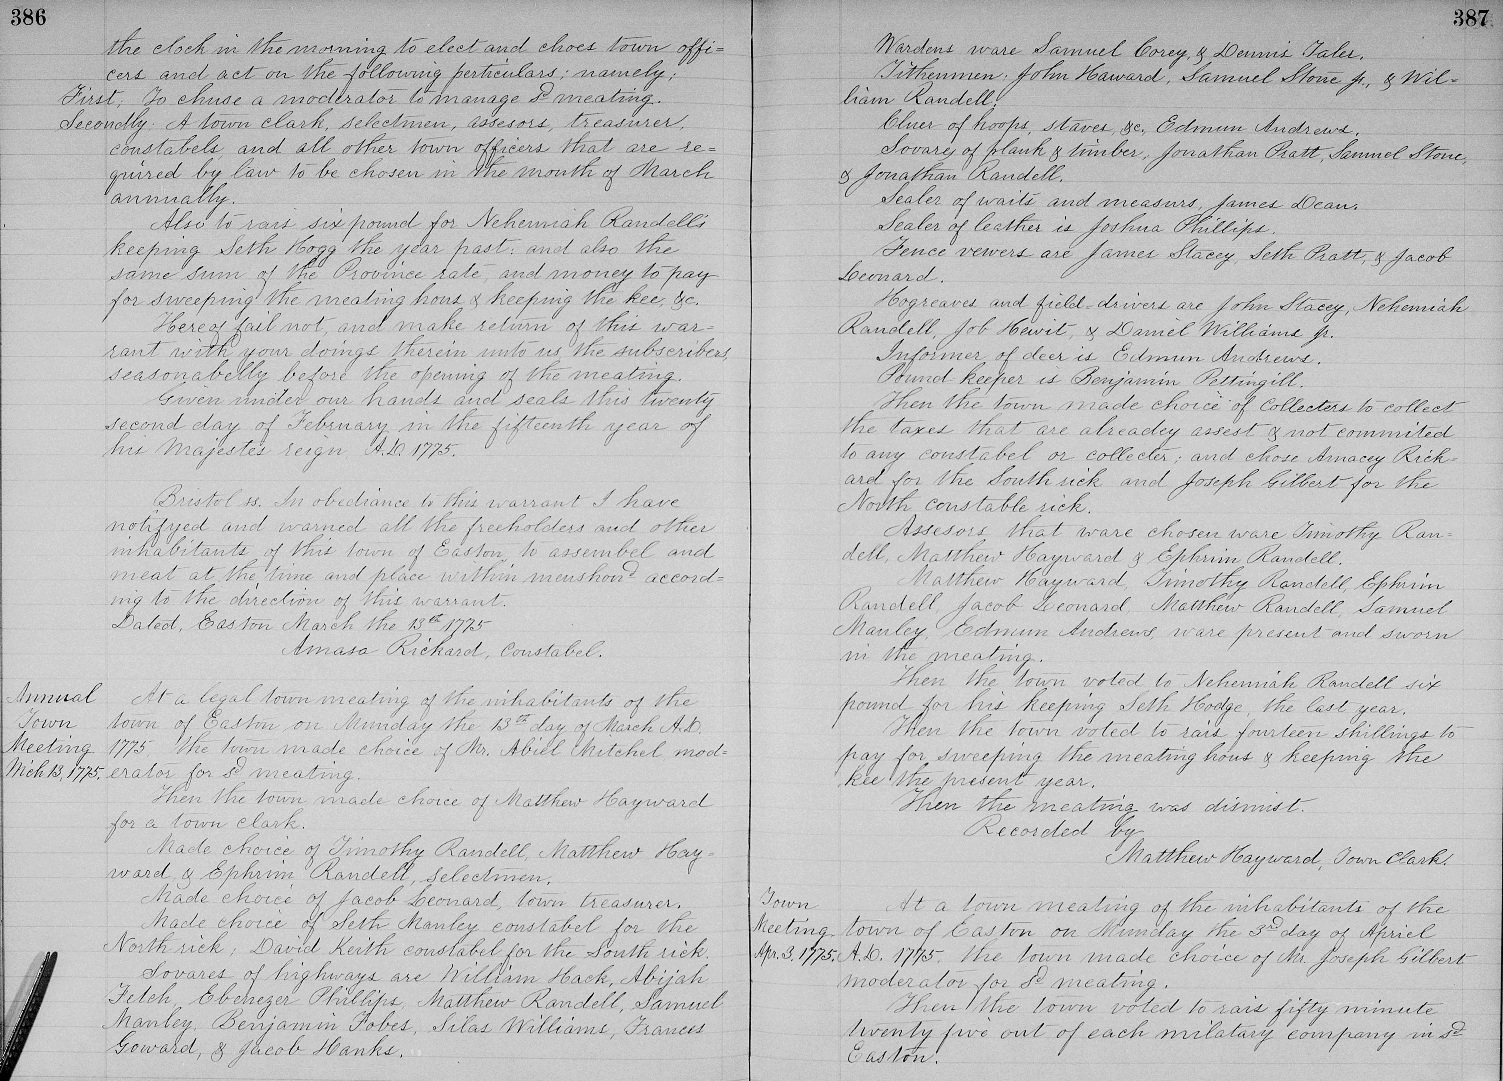 386
the clock in the morning to elect and choes town offi=
cers and act on the following perticulars; namely;
First; To chuse a moderator to manage sd meating.
Secondly: A town clark, selectmen, assesors, treasurer,
constabels, and all other town officers that are re=
quired by law to be chosen in the month of March
annually.
Also to rais six pound for Nehemiah Randell's
keeping Seth Hogg the year past; and also the
same sum of the Province rate, and money to pay
for sweeping the meating hous & keeping the kee, &c.
Hereof fail not, and make return of this war-
rant with your doings therein unto us the subscribers,
seasonabelly before the opening of the meating.
Given under our hands and seals this twenty
second day of February in the fifteenth year of
his Majeste's reign, A.D. 1775.
Bristol ss. In obediance to this warrant I have
notifyed and warned all the freeholders and other
inhabitants of this town of Easton, to assembel and
meat at the time and place within menshond accord=
ing to the direction of this warrant.
Dated, Easton March the 13th 1775
Amasa Rickard, Constabel.
Annual
Town
Meeting
Mch 13, 1775.
At a legal town meating of the inhabitants of the
town of Easton on Munday the 13th day of March A.D.
1775 the town made choice of Mr. Abiel Mitchel mod=
erator for sd meating.
Then the town made choice of Matthew Hayward
for a town clark.
Made choice of Timothy Randell, Matthew Hay-
ward & Ephrim Randell, selectmen.
Made choice of Jacob Leonard, town treasurer.
Made choice of Seth Manley constabel for the
North rick; David Keith constabel for the South rick.
Sovares of highways are William Hack, Abijah
Fetch, Ebenezer Phillips, Matthew Randell, Samuel
Manley, Benjamin Fobes, Silas Williams, Frances
Goward, & Jacob Hanks.
387
Wardens ware Samuel Corey, & Dennis Tales.
Tithenmen; John Haward, Samuel Stone jr., & Wil=
liam Randell;
Cluer of hoops, staves, &c, Edmun Andrews.
Sovares of plank & timber, Jonathan Pratt, Samuel Stone,
& Jonathan Randell.
Sealer of waits and measurs, James Dean.
Sealer of leather is Joshua Phillips.
Fence vewers are James Stacey, Seth Pratt, & Jacob
Leonard.
Hogreaves and field-drivers are John Stacey, Nehemiah
Randell, Job Hewit, & Daniel Williams jr.
Informer of deer is Edmun Andrews.
Pound-keeper is Benjamin Pettingill.
Then the town made choice of Collecters to collect
the taxes that are alreadey assest & not commited
to any constabel or collecter; and chose Amacey Rick-
ard for the South rick and Joseph Gilbert for the
North constable rick.
Assesors that ware chosen ware Timothy Ran-
dell, Matthew Hayward & Ephrim Randell.
Matthew Hayward Timothy Randell, Ephrim
Randell, Jacob Leonard Matthew Randell, Samuel
Manley, Edmun Andrews, ware present and sworn
in the meating.
Then the town voted to Nehemiah Randell six
pound for his keeping Seth Hodge, the last year.
Then the town voted to rais fourteen shillings to
pay for sweeping the meating hous & keeping the
kee the present year.
Then the meating was dismist.
Recorded by
Matthew Hayward, Town Clark.
Town
Meeting
Apr. 3, 1775.
At a town meating of the inhabitants of the
town of Easton on Munday the 3rd day of Apriel
A.D. 1775, the town made choice of Mr. Joseph Gilbert
moderator for sd meating.
Then the town voted to rais fifty minute
twenty five out of each milatary company in sd
Easton.